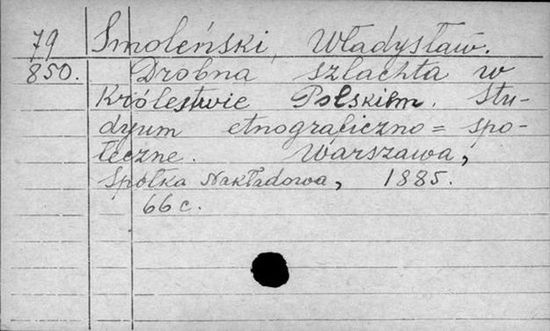 79 Smoleński, Władysław.
850. Drobna szlachta w
Królestwie Polskiem. Stu-
dyum etnograficzno=spo-
łeczne. Warszawa,
Spółka Nakładowa, 1885.
66 c.